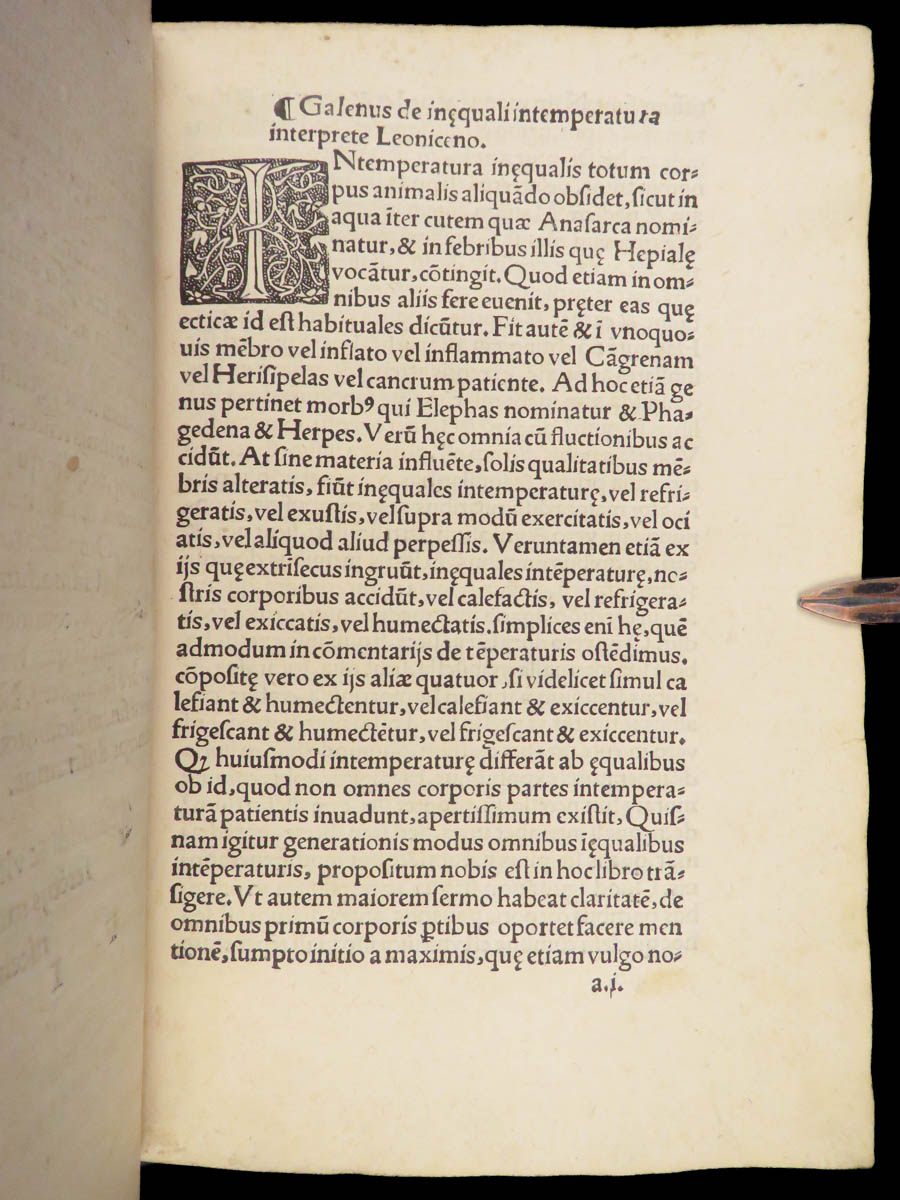 ¶ Galenus de inęquali intemperatura
interprete Leoniceno.
INtemperatura inęqualis totum cor-
pus animalis aliquãdo obsidet, sicut in
aqua ĩter cutem quæ Anasarca nomi-
natur, & in febribus illis quę Hepialę
vocãtur, cõtingit. Quod etiam in om-
nibus aliis fere euenit, pręter eas quę
ecticæ id est habituales dicũtur. Fit autẽ & ĩ vnoquo-
uis mẽbro vel inflato vel inflammato vel Cãgrenam
vel Herisipelas vel cancrum patiente. Ad hoc etiã ge
nus pertinet morbꝰ qui Elephas nominatur & Pha-
gedena & Herpes. Verũ hęc omnia cũ fluctionibus ac
cidũt. At sine materia influẽte, solis qualitatibus mẽ-
bris alteratis, fiũt inęquales intemperaturę, vel refri-
geratis, vel exustis, vel supra modũ exercitatis, vel oci
atis, vel aliquod aliud perpessis. Veruntamen etiã ex
ijs quę extrisecus ingruũt, inęquales intẽperaturę, no-
stris corporibus accidũt, vel calefactis, vel refrigera-
tis, vel exiccatis, vel humectatis. simplices enĩ hę, quẽ
admodum in cõmentarijs de tẽperaturis ostẽdimus.
cõpositę vero ex ijs aliæ quatuor, si videlicet simul ca
lefiant & humectentur, vel calefiant & exiccentur, vel
frigescant & humectẽtur, vel frigescant & exiccentur.
Qꝫ huiusmodi intemperaturę differãt ab ęqualibus
ob id, quod non omnes corporis partes intempera-
turã patientis inuadunt, apertissimum existit, Quis-
nam igitur generationis modus omnibus ĩęqualibus
intẽperaturis, propositum nobis est in hoc libro trã-
sigere. Vt autem maiorem sermo habeat claritatẽ, de
omnibus primũ corporis ꝑtibus oportet facere men
tionẽ, sumpto initio a maximis, quę etiam vulgo no-
a.i.